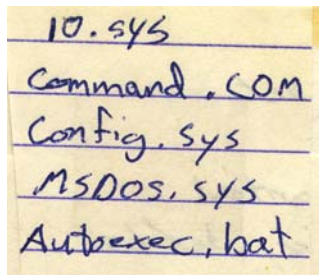 IO.sys
Command.COM
Config.sys
MSDOS.sys
Autoexec.bat